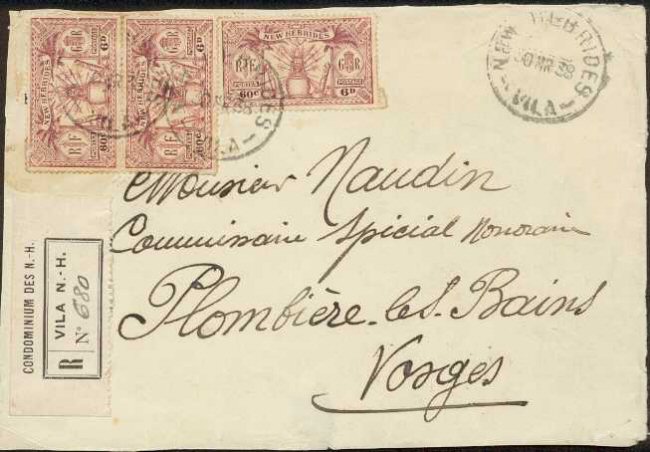 NEW HEBRIDES
R F
G R
POSTES
POSTAGE
60c
6D
NEW HEBRIDES
R F
G R
POSTES
POSTAGE
60c
6D
NEW HEBRIDES
R F
G R
POSTES
POSTAGE
60c
6D
NEW HEBRIDES
VILA
Monsieur Naudin
Commissaire Spécial Honoraire
Plombière-les-Bains
Vosges
CONDOMINIUM DES N.-H.
R
VILA N.-H.
N° 680